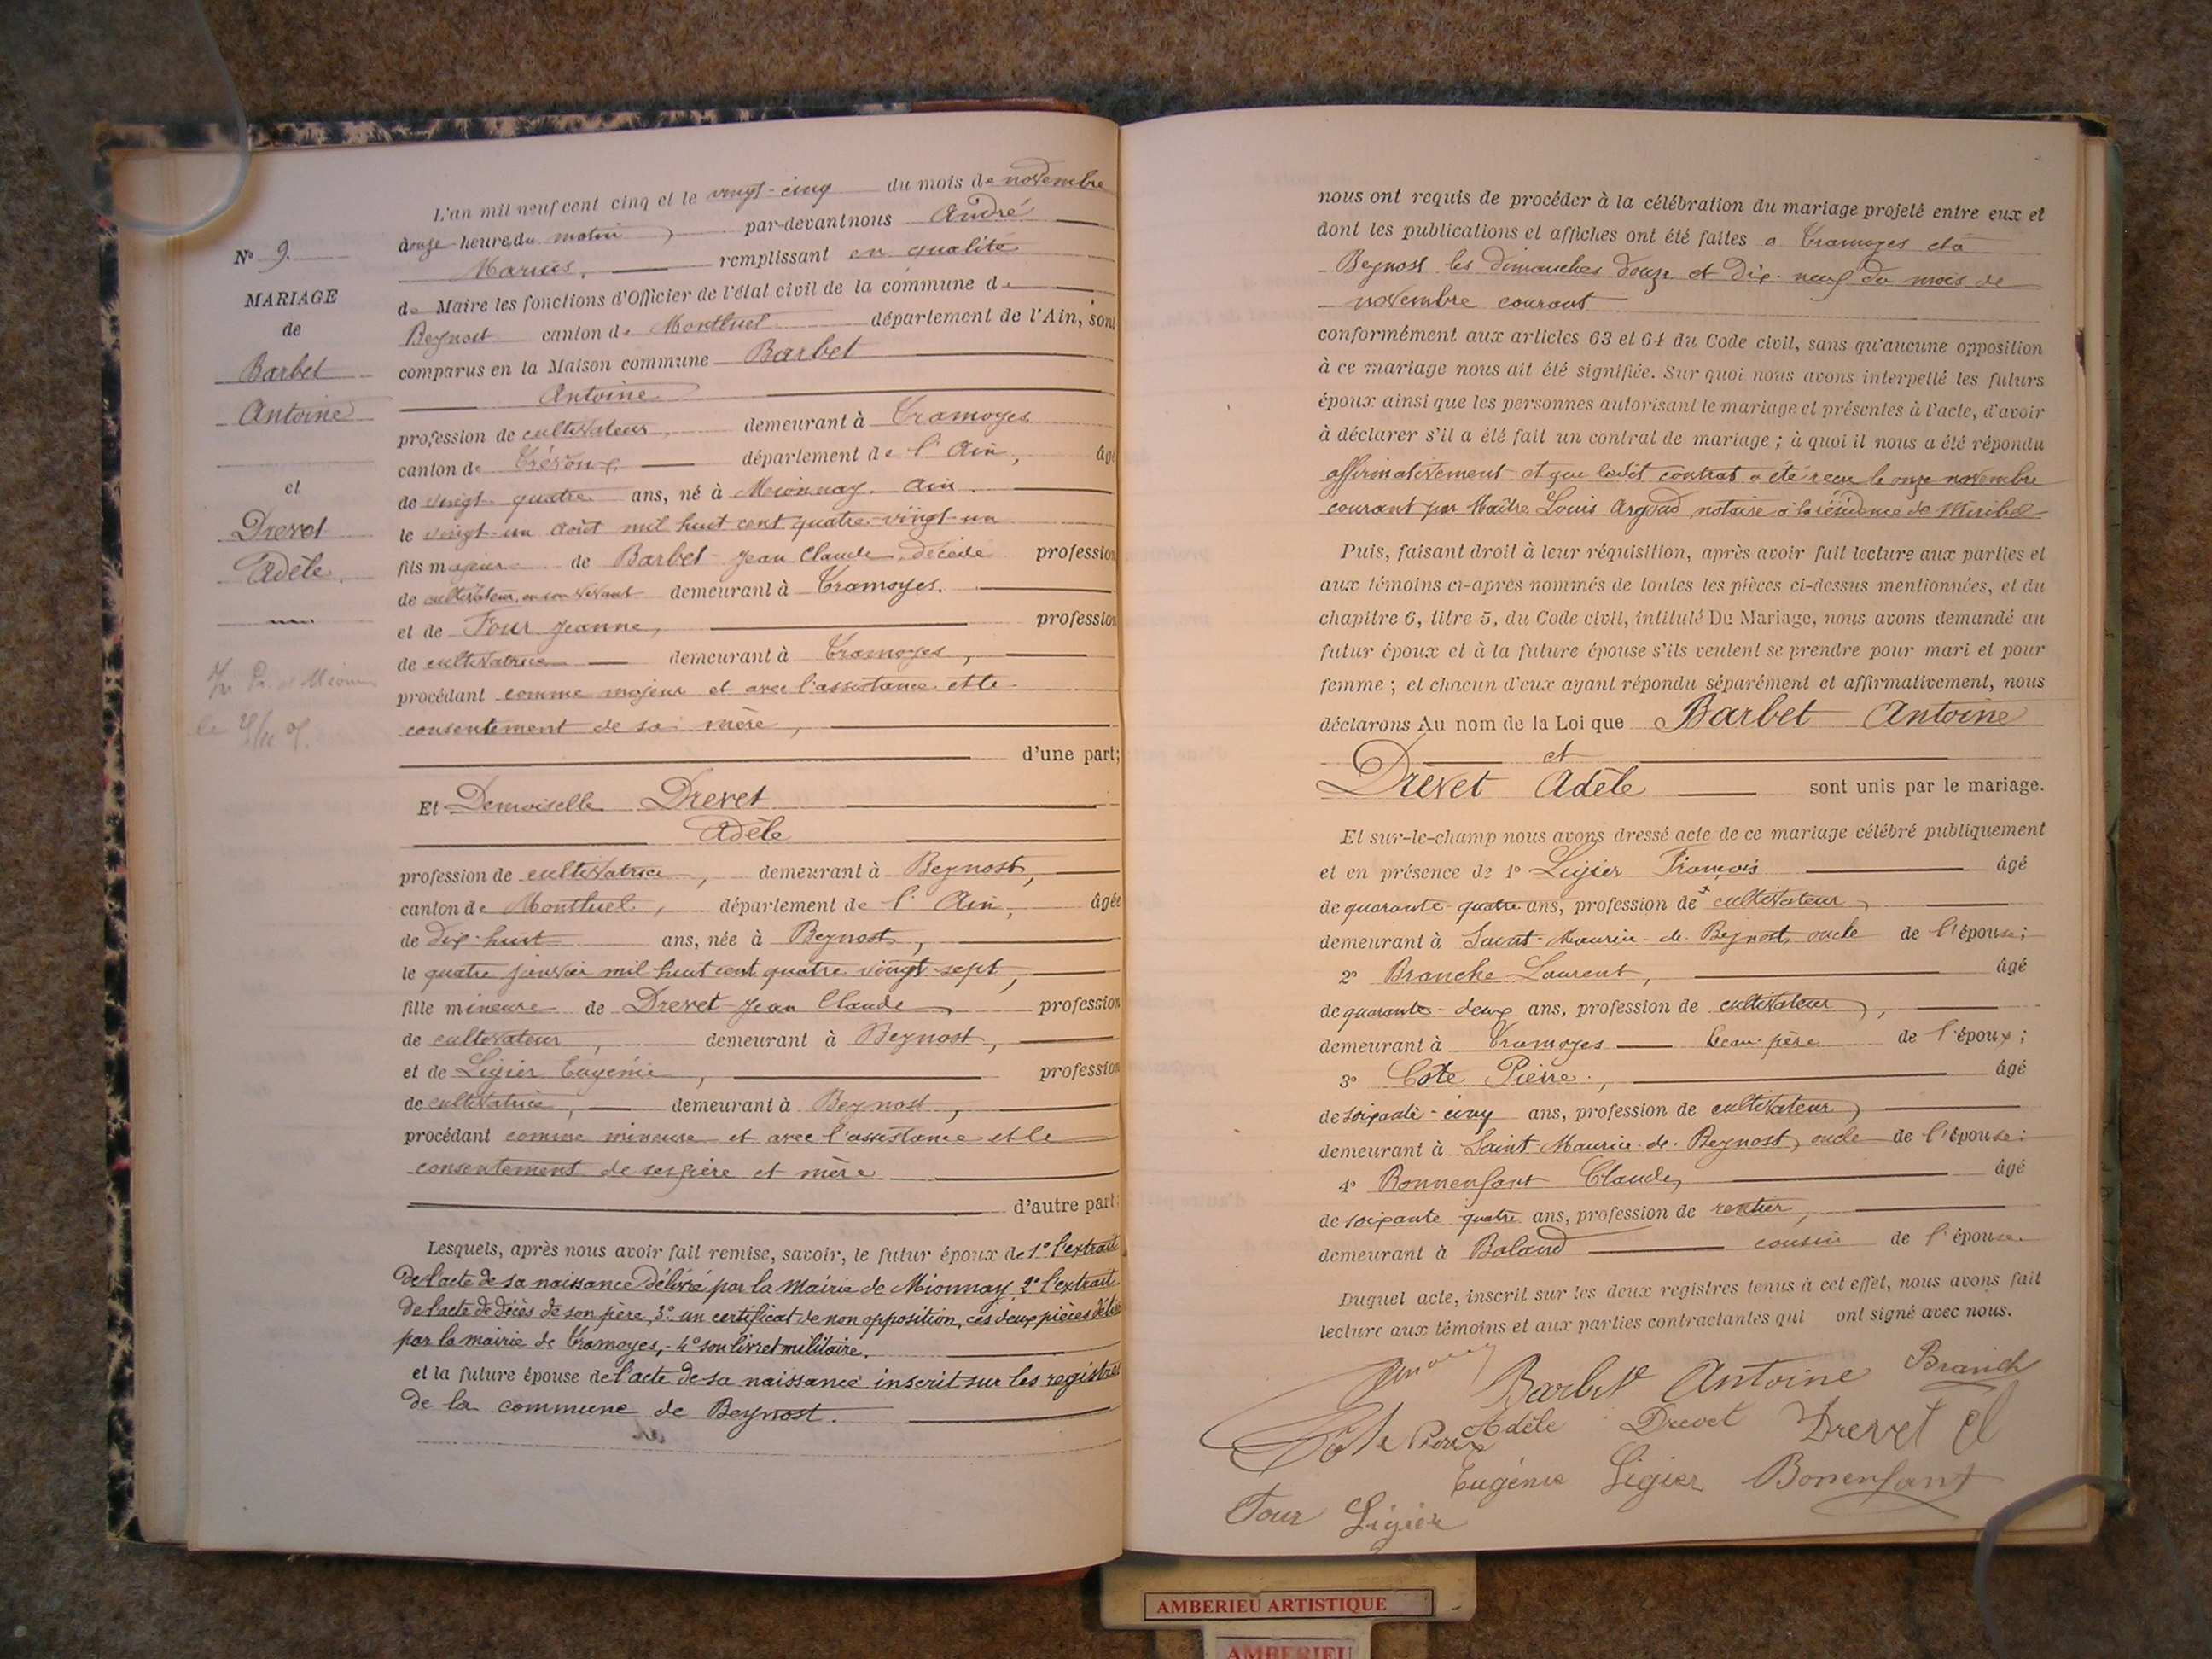 N° 9
MARIAGE
de
Barbet
Antoine
et
Drevet
Adèle.
L'an mil neuf cent cinq et le vingt-cinq du mois de novembre
à onze heures du matin, par-devant nous André
Marius, remplissant en qualité
de Maire les fonctions d'Officier de l'état civil de la commune de
Beynost canton de Montluel département de l'Ain, sont
comparus en la Maison commune Barbet
Antoine
profession de cultivateur, demeurant à Tramoyes
canton de Trévoux, département de l'Ain, âgé
de vingt quatre ans, né à Mionnay. Ain.
le vingt-un août mil huit cent quatre-vingt-un
fils majeur de Barbet Jean Claude, décédé profession
de cultivateur, en son vivant demeurant à Tramoyes.
et de Four Jeanne, profession
de cultivatrice demeurant à Tramoyes,
procédant comme majeur et avec l'assistance et le
consentement de sa mère,
d'une part;
Et Demoiselle Drevet
Adèle
profession de cultivatrice, demeurant à Beynost,
canton de Montluel, département de l'Ain, âgée
de dix-huit ans, née à Beynost,
le quatre janvier mil huit cent quatre vingt-sept,
fille mineure de Drevet Jean Claude, profession
de cultivateur, demeurant à Beynost,
et de Ligier Eugénie, profession
de cultivatrice, demeurant à Beynost,
procédant comme mineure et avec l'assistance et le
consentement de ses père et mère
d'autre part:
Lesquels, après nous avoir fait remise, savoir, le futur époux de 1° l'extrait
de l'acte de sa naissance délivré par la Mairie de Mionnay, 2° l'extrait
de l'acte de décès de son père, 3° un certificat de non opposition, ces deux pièces
par la mairie de Tramoyes, - 4° son livret militaire.
et la future épouse de l'acte de sa naissance inscrit sur les registres
de la commune de Beynost.
nous ont requis de procéder à la célébration du mariage projeté entre eux et
dont les publications et affiches ont été faites a Tramoyes et à
Beynost les dimanches douze et dix-neuf du mois de
novembre courant
conformément aux articles 63 et 64 du Code civil, sans qu'aucune opposition
à ce mariage nous ait été signifiée. Sur quoi nous avons interpellé les futurs
époux ainsi que les personnes autorisant le mariage et présentes à l'acte, d'avoir
à déclarer s'il a été fait un contrat de mariage ; à quoi il nous a été répondu
affirmativement et que ledit contrat a été reçu le onze novembre
courant par Maître Louis Argoud notaire à la résidence de Miribel
Puis, faisant droit à leur réquisition, après avoir fait lecture aux parties et
aux témoins ci-après nommés de toutes les pièces ci-dessus mentionnées, et du
chapitre 6, titre 5, du Code civil, intitulé Du Mariage, nous avons demandé au
futur époux et à la future épouse s'ils veulent se prendre pour mari et pour
femme ; et chacun d'eux ayant répondu séparément et affirmativement, nous
déclarons Au nom de la Loi que Barbet Antoine
et
Drevet Adèle sont unis par le mariage.
Et sur-le-champ nous avons dressé acte de ce mariage célébré publiquement
et en présence de 1° Ligier François âgé
de quarante-quatre ans, profession de cultivateur,
demeurant à Saint-Maurice-de-Beynost, oncle de l'épouse;
2° Branche Laurent, âgé
de quarante-deux ans, profession de cultivateur,
demeurant à Tramoyes beau-père de l'époux;
3° Côte Pierre, âgé
de soixante-cinq ans, profession de cultivateur,
demeurant à Saint-Maurice-de-Beynost, oncle de l'épouse:
4° Bonnenfant Claude, âgé
de soixante quatre ans, profession de rentier,
demeurant à Baland cousin de l'épouse.
Duquel acte, inscrit sur les deux registres tenus à cet effet, nous avons fait
lecture aux témoins et aux parties contractantes qui ont signé avec nous.
Barbet Antoine Branch
Côte Pierre Adèle Drevet Drevet
Eugénie Ligier Bonenfant
Four Ligier
AMBERIEU ARTISTIQUE
AMBERIEU